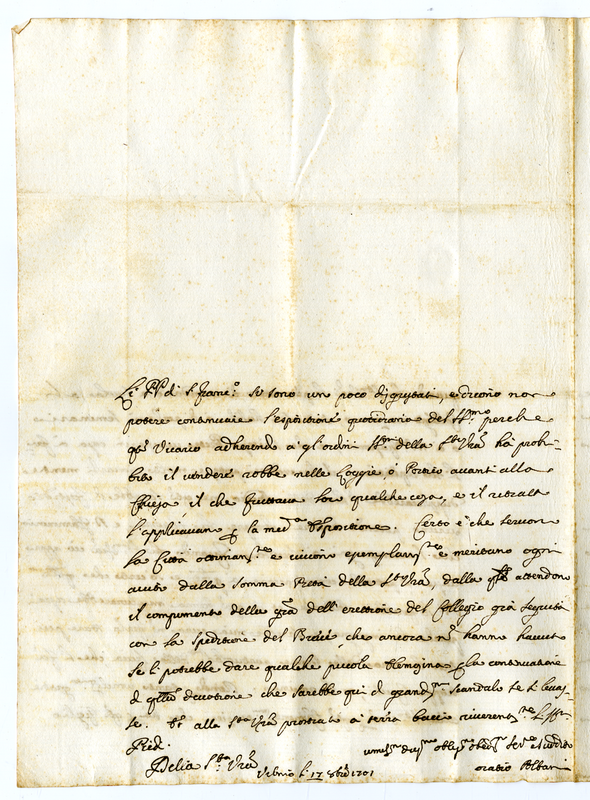 Li PP. di S. Franc.o si sono un poco disgustati, e dicono non
potere continuare l'espositione quotidiana del SS.mo perche
q.to Vicario adherendo a gl'ordini SS.mi della S.tà V.ra hà prohi-
bito il vendere robbe nelle Loggie, ò Portico avanti alla
Chiesa, il che fruttava loro qualche cosa, e il ritratto
l'applicavano p la med.a Espositione. Certo è che servono
la Città ottimam.te e vivono esemplarm.te e meritano ogni
aiuto dalla somma Pietà della S.tà V.ra, dalla q.le attendono
il compimento della gra dell'erettione del Collegio già seguita
con la speditione del Breve, che ancora nō hanno havuto
Se li potrebbe dare qualche piccola elemosina p la continuatione
di q.ta devotione che sarebbe qui di grand.mo scandalo se si levas-
se. Et alla S.tà V.ra prostrato a terra bacio riverentem.te li SS.mi
Piedi.
Della S.tà V.ra
Urbino li 17 8bre 1701
umiliss.mo dev.mo oblig.mo obed.mo Ser.re e Suddito
Oratio Albani